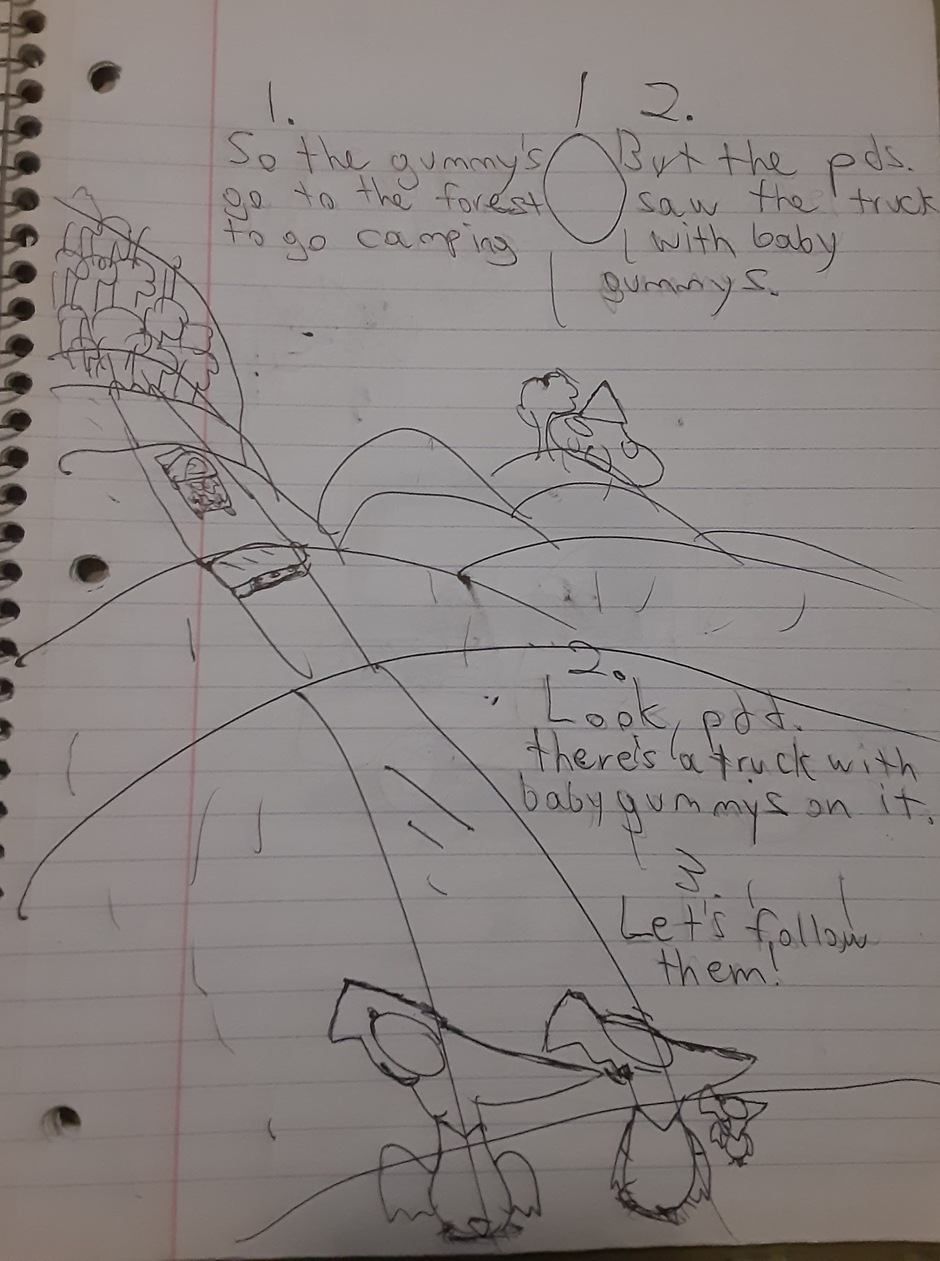 1.
So the gummy's
go to the forest
to go camping
2.
But the pds.
saw the truck
with baby
gummys.
2.
Look, pdd.
there's a truck with
baby gummys on it.
3.
Let's follow
them!